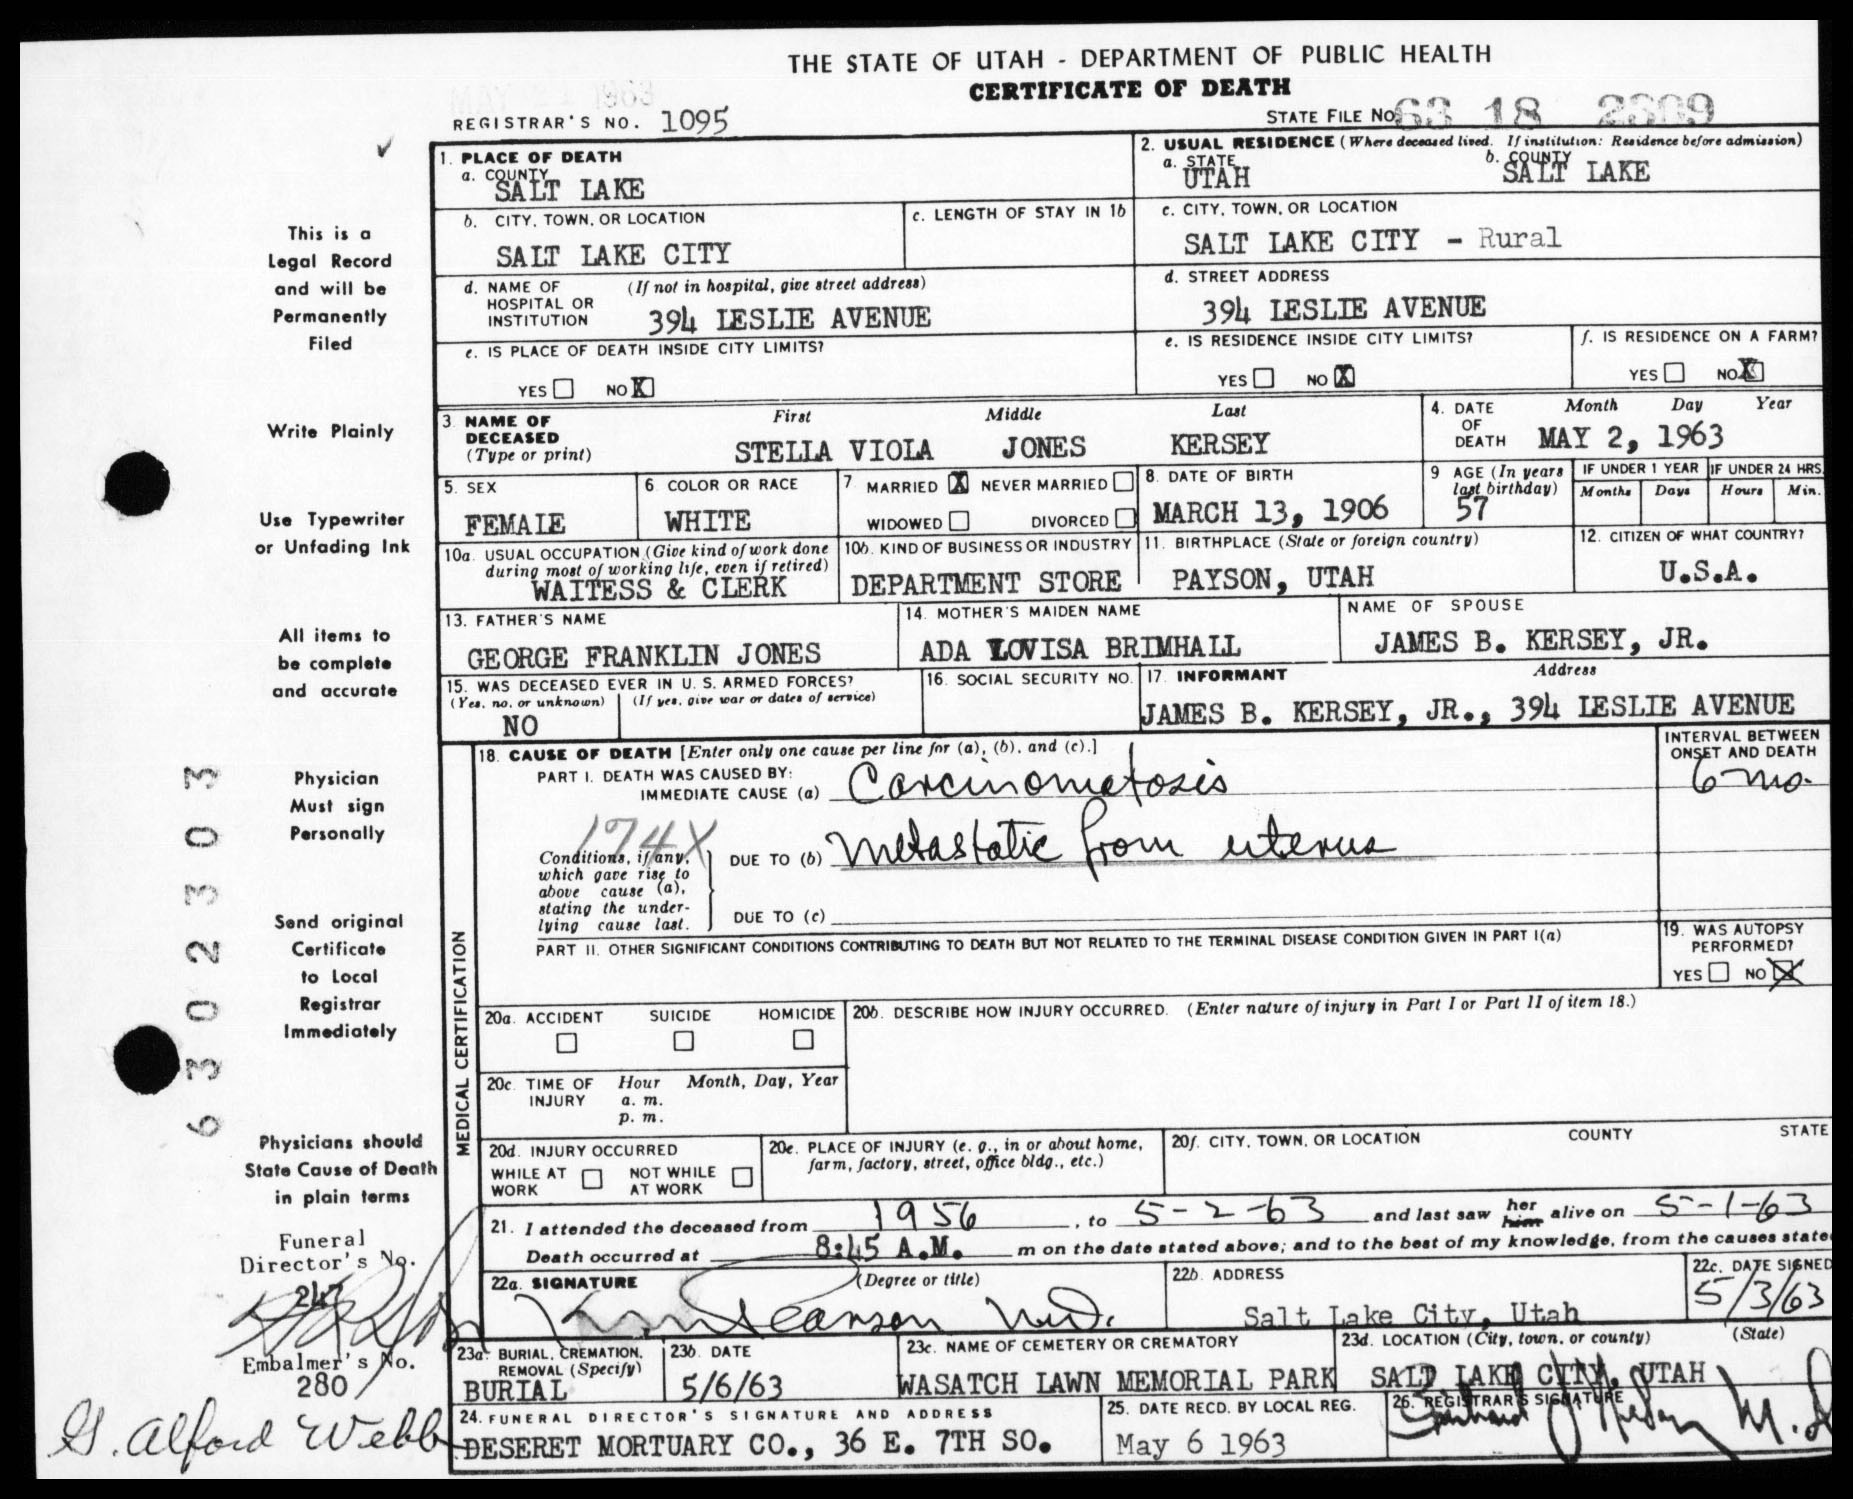 THE STATE OF UTAH - DEPARTMENT OF PUBLIC HEALTH
CERTIFICATE OF DEATH
REGISTRAR'S NO. 1095
STATE FILE NO. 63 18 2309
1. PLACE OF DEATH
a. COUNTY
SALT LAKE
2. USUAL RESIDENCE (Where deceased lived. If institution: Residence before admission)
a. STATE b. COUNTY
UTAH SALT LAKE
b. CITY, TOWN, OR LOCATION
SALT LAKE CITY
c. LENGTH OF STAY IN 1b
c. CITY, TOWN, OR LOCATION
SALT LAKE CITY - Rural
d. NAME OF HOSPITAL OR INSTITUTION (If not in hospital, give street address)
394 LESLIE AVENUE
d. STREET ADDRESS
394 LESLIE AVENUE
e. IS PLACE OF DEATH INSIDE CITY LIMITS?
YES NO X
e. IS RESIDENCE INSIDE CITY LIMITS?
YES NO X
f. IS RESIDENCE ON A FARM?
YES NO X
3. NAME OF DECEASED (Type or print)
First Middle Last
STELLA VIOLA JONES KERSEY
4. DATE OF DEATH
Month Day Year
MAY 2, 1963
5. SEX
FEMALE
6. COLOR OR RACE
WHITE
7. MARRIED X NEVER MARRIED
WIDOWED DIVORCED
8. DATE OF BIRTH
MARCH 13, 1906
9 AGE (In years last birthday)
57
IF UNDER 1 YEAR
Months Days
IF UNDER 24 HRS.
Hours Min.
10a. USUAL OCCUPATION (Give kind of work done during most of working life, even if retired)
WAITESS & CLERK
10b. KIND OF BUSINESS OR INDUSTRY
DEPARTMENT STORE
11. BIRTHPLACE (State or foreign country)
PAYSON, UTAH
12. CITIZEN OF WHAT COUNTRY?
U.S.A.
13. FATHER'S NAME
GEORGE FRANKLIN JONES
14. MOTHER'S MAIDEN NAME
ADA LOVISA BRIMHALL
NAME OF SPOUSE
JAMES B. KERSEY, JR.
15. WAS DECEASED EVER IN U. S. ARMED FORCES?
(Yes, no, or unknown) (If yes, give war or dates of service)
NO
16. SOCIAL SECURITY NO.
17. INFORMANT Address
JAMES B. KERSEY, JR., 394 LESLIE AVENUE
MEDICAL CERTIFICATION
18. CAUSE OF DEATH [Enter only one cause per line for (a), (b), and (c).]
PART I. DEATH WAS CAUSED BY:
IMMEDIATE CAUSE (a) Carcinomatosis
INTERVAL BETWEEN ONSET AND DEATH
6 mo.
174X
Conditions, if any, which gave rise to above cause (a), stating the underlying cause last.
DUE TO (b) Metastatic from uterus
DUE TO (c)
PART II. OTHER SIGNIFICANT CONDITIONS CONTRIBUTING TO DEATH BUT NOT RELATED TO THE TERMINAL DISEASE CONDITION GIVEN IN PART I(a)
19. WAS AUTOPSY PERFORMED?
YES NO X
20a. ACCIDENT SUICIDE HOMICIDE
20b. DESCRIBE HOW INJURY OCCURRED. (Enter nature of injury in Part I or Part II of item 18.)
20c. TIME OF INJURY Hour Month, Day, Year
a. m.
p. m.
20d. INJURY OCCURRED
WHILE AT WORK NOT WHILE AT WORK
20e. PLACE OF INJURY (e. g., in or about home, farm, factory, street, office bldg., etc.)
20f. CITY, TOWN, OR LOCATION COUNTY STATE
21. I attended the deceased from 1956, to 5-2-63 and last saw her him alive on 5-1-63
Death occurred at 8:45 A.M. m on the date stated above; and to the best of my knowledge, from the causes state
22a. SIGNATURE (Degree or title)
Pearson M.D.
22b. ADDRESS
Salt Lake City, Utah
22c. DATE SIGNED
5/3/63
23a. BURIAL, CREMATION, REMOVAL (Specify)
BURIAL
23b. DATE
5/6/63
23c. NAME OF CEMETERY OR CREMATORY
WASATCH LAWN MEMORIAL PARK
23d. LOCATION (City, town, or county) (State)
SALT LAKE CITY, UTAH
24. FUNERAL DIRECTOR'S SIGNATURE AND ADDRESS
DESERET MORTUARY CO., 36 E. 7TH SO.
25. DATE RECD. BY LOCAL REG.
May 6 1963
26. REGISTRAR'S SIGNATURE
This is a
Legal Record
and will be
Permanently
Filed
Write Plainly
Use Typewriter
or Unfading Ink
All items to
be complete
and accurate
Physician
Must sign
Personally
Send original
Certificate
to Local
Registrar
Immediately
Physicians should
State Cause of Death
in plain terms
Funeral
Director's No.
247
Embalmer's No.
280
G. Alford Webb
6302303